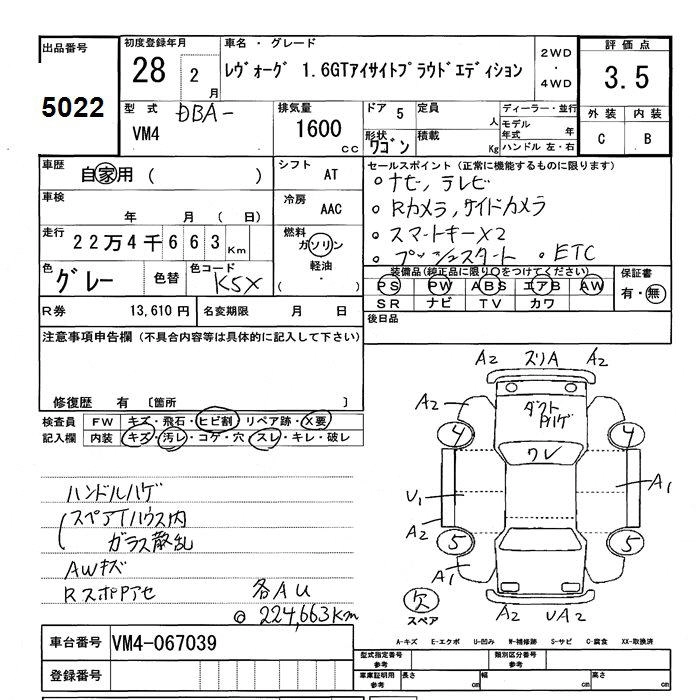 出品番号
5022
初度登録年月
28 2 月
車名 ・ グレード
レヴォーグ 1.6GTアイサイトプラウドエディション
2WD
・
4WD
評 価 点
3.5
外 装 内 装
C B
型 式
DBA-
VM4
排気量
1600
cc
ドア 5
形状
ワゴン
定員
人
積載
Kg
ディーラー・並行
モデル
年式 年
ハンドル 左・右
車歴
自家用 ( )
シフト
AT
車検
年 月 ( 日)
冷房
AAC
走行
22万4千663 Km
燃料
ガソリン
軽油
( ・ )
色
グレー
色替
色コード
K5X
R券 13,610 円
名変期限 月 日
セールスポイント (正常に機能するものに限ります)
。ナビ,テレビ
。Rカメラ,サイドカメラ
。スマートキーX2
。プッシュスタート 。ETC
装備品(純正品に限り〇をつけてください)
PS PW ABS エアB AW
SR ナビ TV カワ
保証書
有・無
後日品
注意事項申告欄 (不具合内容等は具体的に記入して下さい)
修復歴 有 〔箇所 〕
検査員
記入欄
FW キズ・飛石・ヒビ割 リペア跡・X要
内装 キズ・汚レ・コゲ・穴 スレ・キレ・破レ
ハンドルハゲ
スペアTハウス内
ガラス散乱
AWキズ
RスポPアセ
各AU
@ 224,663Km
A2 スリA A2
A2
ダクト
Pハゲ
4 4
ワレ
U1 A1
A2
5 5
A1
欠
スペア
A2 UA2
A-キズ E-エクボ U-凹み W-補修跡 S-サビ C-腐食 XX-取換済
車台番号 VM4-067039
登録番号
型式指定番号
参考
類別区分番号
参考
車庫証明用
参考
長さ cm
幅 cm
高さ cm